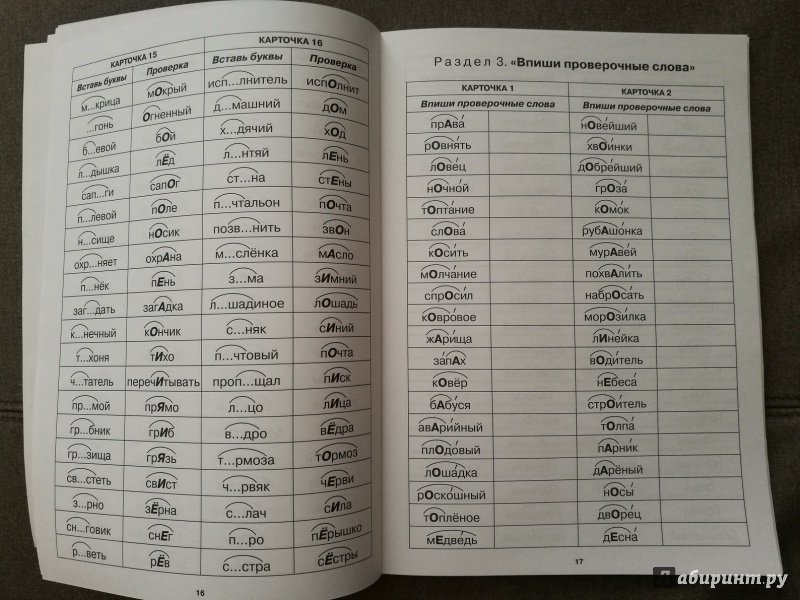 КАРТОЧКА 15 КАРТОЧКА 16
Вставь буквы Проверка Вставь буквы Проверка
м...крица мОкрый исп...лнитель испОлнит
...гонь Огненный д...машний дОм
б...евой бОй х...дячий хОд
л...дышка лЁд л...нтяй лЕнь
сап...ги сапОг ст...на стЕны
п...левой пОле п...чтальон пОчта
н...сище нОсик позв...нить звОн
охр...няет охрАна м...слёнка мАсло
п...нёк пЕнь з...ма зИмний
заг...дать загАдка л...шадиное лОшадь
к...нечный кОнчик с...няк сИний
т...хоня тИхо п...чтовый пОчта
ч...татель перечИтывать проп...щал пИск
пр...мой прЯмо л...цо лИца
гр...бник грИб в...дро вЁдра
гр...зища грЯзь т...рмоза тОрмоз
св...стеть свИст ч...рвяк чЕрви
з...рно зЁрна с...лач сИла
сн...говик снЕг п...ро пЁрышко
р...веть рЁв с...стра сЁстры
16
Раздел 3. «Впиши проверочные слова»
КАРТОЧКА 1 КАРТОЧКА 2
Впиши проверочные слова Впиши проверочные слова
прАва́ нОве́йший
рОвня́ть хвОи́нки
лОве́ц дОбре́йший
нОчно́й грОза́
тОпта́ние кОмо́к
слОва́ рубАшо́нка
кОси́ть мурАве́й
мОлча́ние похвАли́ть
спрОси́л набрОса́ть
кОвро́вое морОзи́лка
жАри́ща лИне́йка
за́пАх вОди́тель
кОвёр нЕбеса́
бАбу́ся стрОи́тель
авАри́йный тОлпа́
плОдо́вый пАрни́к
лОша́дка дАрёный
рОско́шный нОсы́
тОплёное двОре́ц
мЕдве́дь дЕсна́
17
Лабиринт.ру